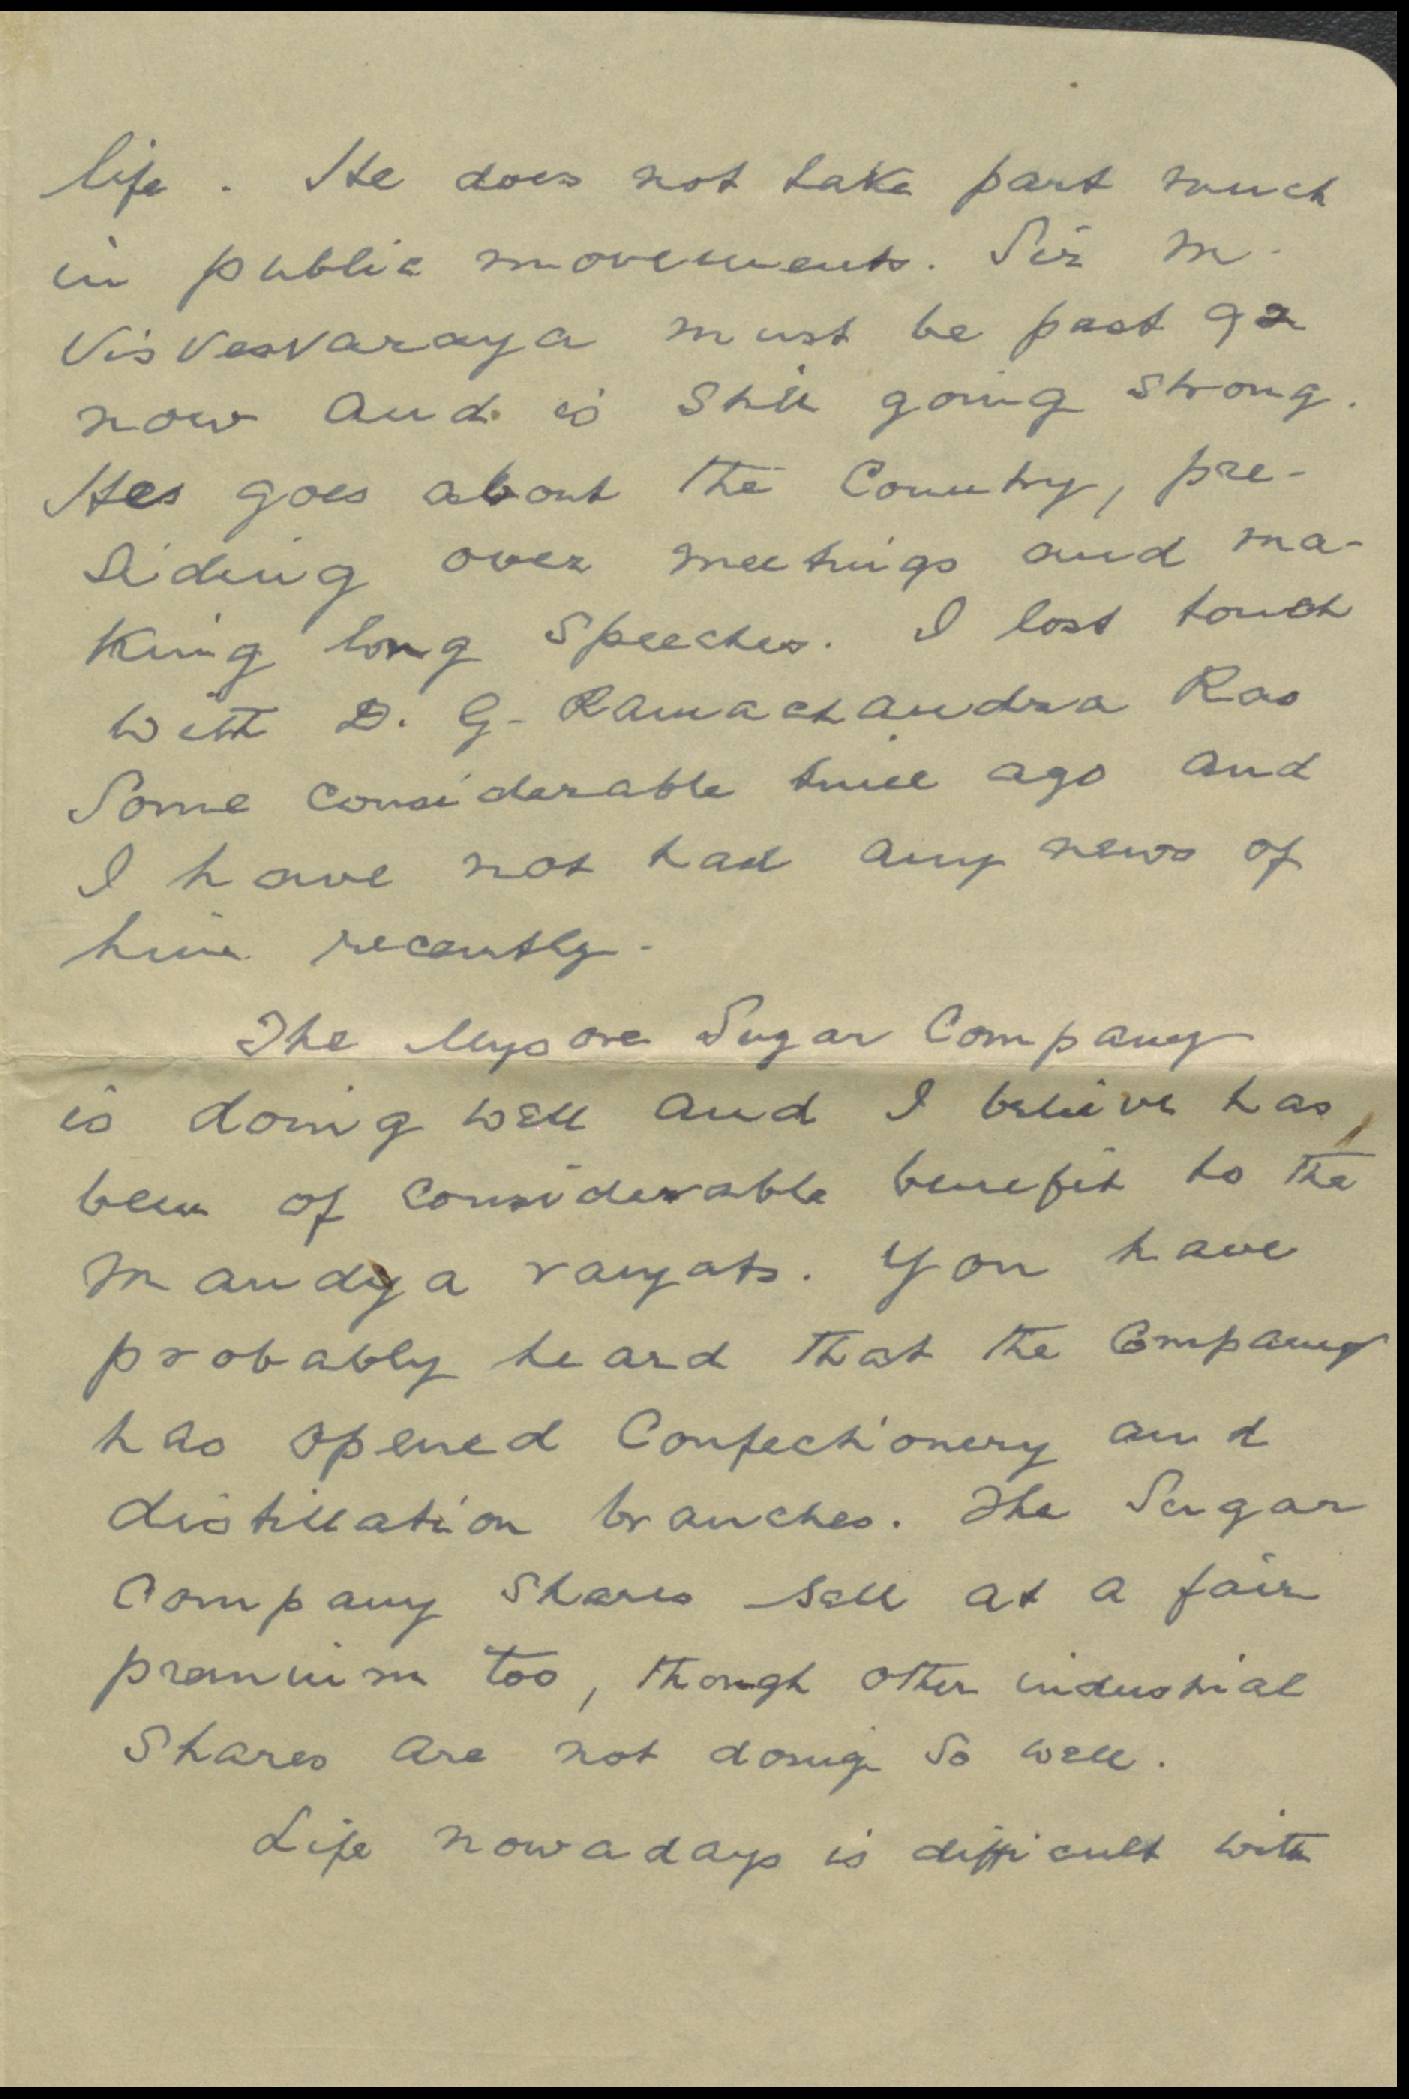 life. He does not take part much
in public movements. Sir M.
Visvesvaraya must be past 92
now and is still going strong.
Hes goes about the Country, pre-
siding over meetings and ma-
king long speeches. I lost touch
with D. G. Ramachandra Rao
Some considerable time ago and
I have not had any news of
him recently.
The Mysore Sugar Company
is doing well and I believe has
been of considerable benefit to the
Mandya raiyats. You have
probably heard that the Company
has opened Confectionery and
distillation branches. The Sugar
Company shares sell at a fair
premium too, though other industrial
Shares are not doing so well.
Life nowadays is difficult with